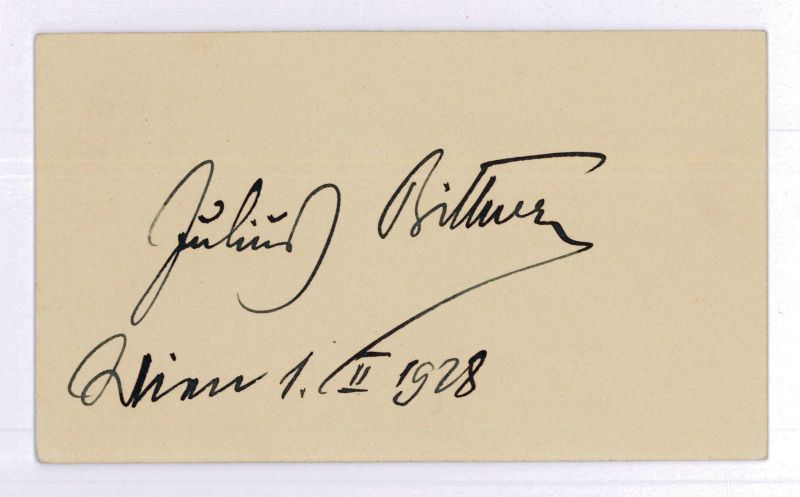 Julius Bittner
Wien 1. II 1928